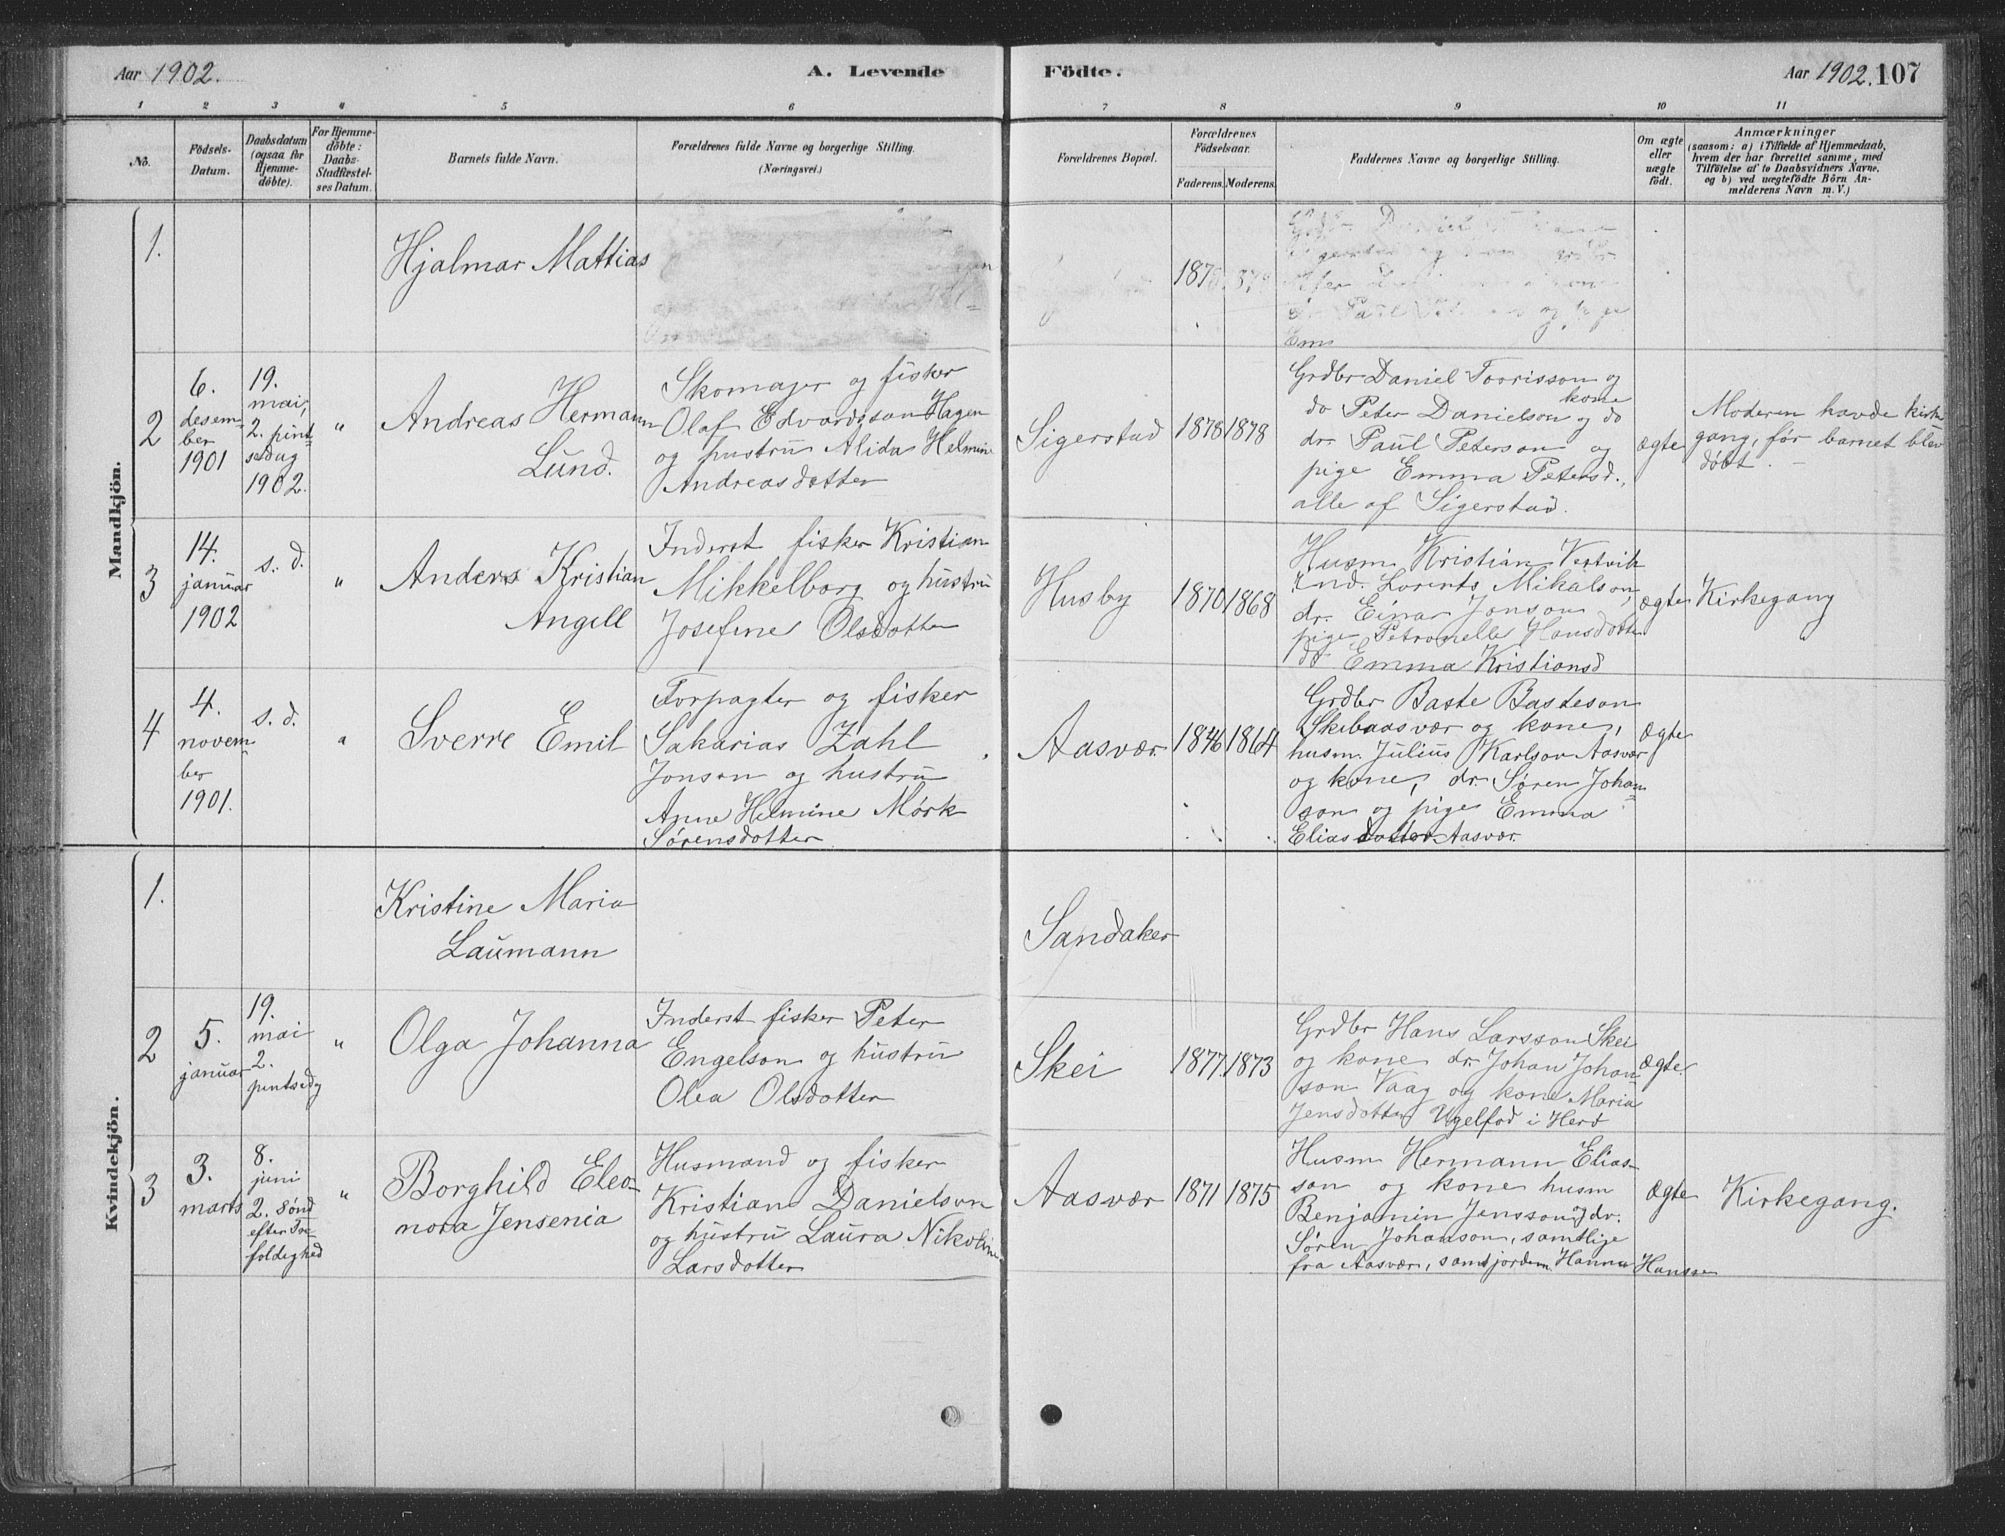 Aar 1902.
A. Levende
Födte.
Aar 1902.
107
1 2 3 4 5 6 7 8 9 10 11
No.
Födsels-
Datum.
Daabsdatum
(ogsaa for
Hjemme-
döbte).
For Hjemme-
döbte:
Daabs-
Stadfæstel-
ses Datum.
Barnets fulde Navn.
Forældrenes fulde Navne og borgerlige Stilling.
(Næringsvei.)
Forældrenes Bopæl.
Forældrenes
Födselsaar.
Faderens. Moderens.
Faddernes Navne og borgerlige Stilling.
Om ægte
eller
uægte
födt.
Anmærkninger
(saasom: a) i Tilfælde af Hjemmedaab,
hvem der har forrettet samme, med
Tilföielse af to Daabsvidners Navne,
og b) ved uægtefödte Börn An-
melderens Navn m. V.)
Mandkjön.
1.
Hjalmar Mattias
2
6.
desem-
ber
1901
19.
mai,
2. pint-
sedag
1902.
"
Andreas Hermann
Lund.
Skomager og fisker
Olaf Edvardsson Hagen
og hustru Alida Helmine
Andreasdotter
Sigerstad
1878
1878
Grdbr Daniel Toorisson og
kone
do Peter Danielson og do
dr. Paul Peterson og
pige Emma Petersd.,
alle af Sigerstad.
ægte
Moderen havde kirke
gang, før barnet blev
døbt. –
3
14.
januar
1902
s. d.
"
Anders Kristian
Angell
Inderst fisker Kristian
Mikkelborg og hustru
Josefine Olsdotter
Husby
1870
1868
Husm Kristian Vestvik
Ind. Lorents Mikalson,
dr. Einar Jonson
pige Petronelle Hansdotter
do Emma Kristiansd
ægte
Kirkegang
4
4.
novem-
ber
1901.
s. d.
"
Sverre Emil
Forpagter og fisker
Sakarias Zahl
Jonson og hustru
Anne Helmine Mørk
Sørensdotter
Aasvær
1846
1864
Grdbr Baste Basteson
Skibaasvær og kone,
husm. Julius Karlson Aasvær
og kone, dr. Søren Johan-
son og pige Emma
Eliasdotter Aasvær.
ægte
Kvindekjön.
1.
Kristine Maria
Laumann
Sandaker
2
5.
januar
19.
mai
2.
pintsedg
"
Olga Johanna
Inderst fisker Peter
Engelson og hustru
Olea Olsdotter
Skei
1877.
1873
Grdbr Hans Larsson Skei
og kone dr. Johan Johan-
son Vaag og kone Maria
Jensdotter Ugelfod i Herø
ægte.
3
3.
marts
8.
juni
2. sønd
efter Tre-
foldighed
"
Borghild Eleo-
nora Jensenia
Husmand og fisker
Kristian Danielson
og hustru Laura Nikoline
Larsdotter
Aasvær
1871
1875
Husm Hermann Elias-
son og kone husm
Benjamin Jensson, dr.
Søren Johanson, samtlige
fra Aasvær, samt jordem. Hanna Hanssen
ægte
Kirkegang.